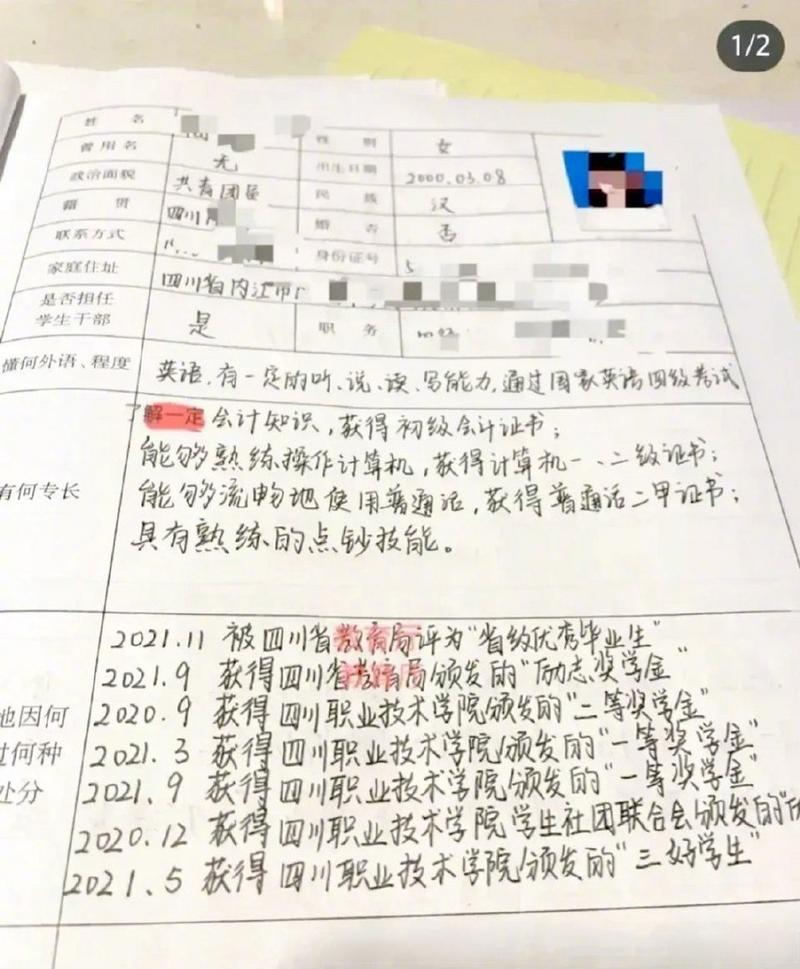 1/2
姓 名
性 别 女
曾用名 无 出生日期 2000.03.08
政治面貌 共青团员 民 族 汉
籍 贯 四川 婚 否 否
联系方式 身份证号 5
家庭住址 四川省内江市
是否担任
学生干部 是 职 务
懂何外语、程度 英语,有一定的听、说、读、写能力,通过国家英语四级考试
了解一定会计知识,获得初级会计证书;
能够熟练操作计算机,获得计算机一、二级证书;
有何专长 能够流畅地使用普通话,获得普通话二甲证书;
具有熟练的点钞技能。
2021.11 被四川省教育局评为"省级优秀毕业生"
2021.9 获得四川省教育局颁发的"励志奖学金"
地因何 2020.9 获得四川职业技术学院颁发的"二等奖学金"
过何种 2021.3 获得四川职业技术学院颁发的"一等奖学金"
处分 2021.9 获得四川职业技术学院颁发的"一等奖学金"
2020.12 获得四川职业技术学院学生社团联合会颁发的"
2021.5 获得四川职业技术学院颁发的"三好学生"